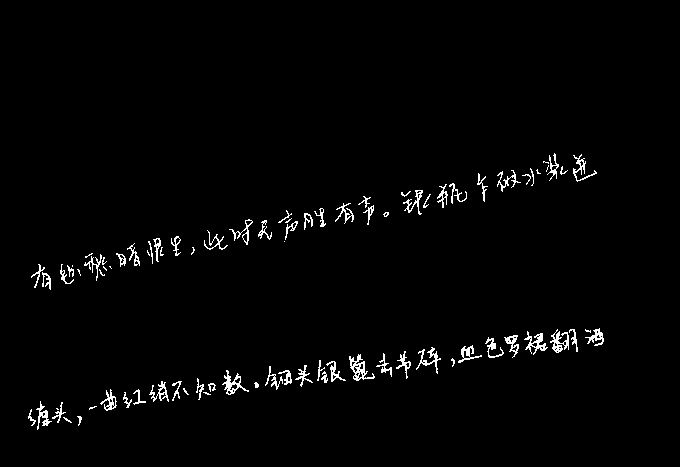 有幽愁暗恨生，此时无声胜有声。银瓶乍破水浆迸
缠头，一曲红绡不知数。钿头银篦击节碎，血色罗裙翻酒